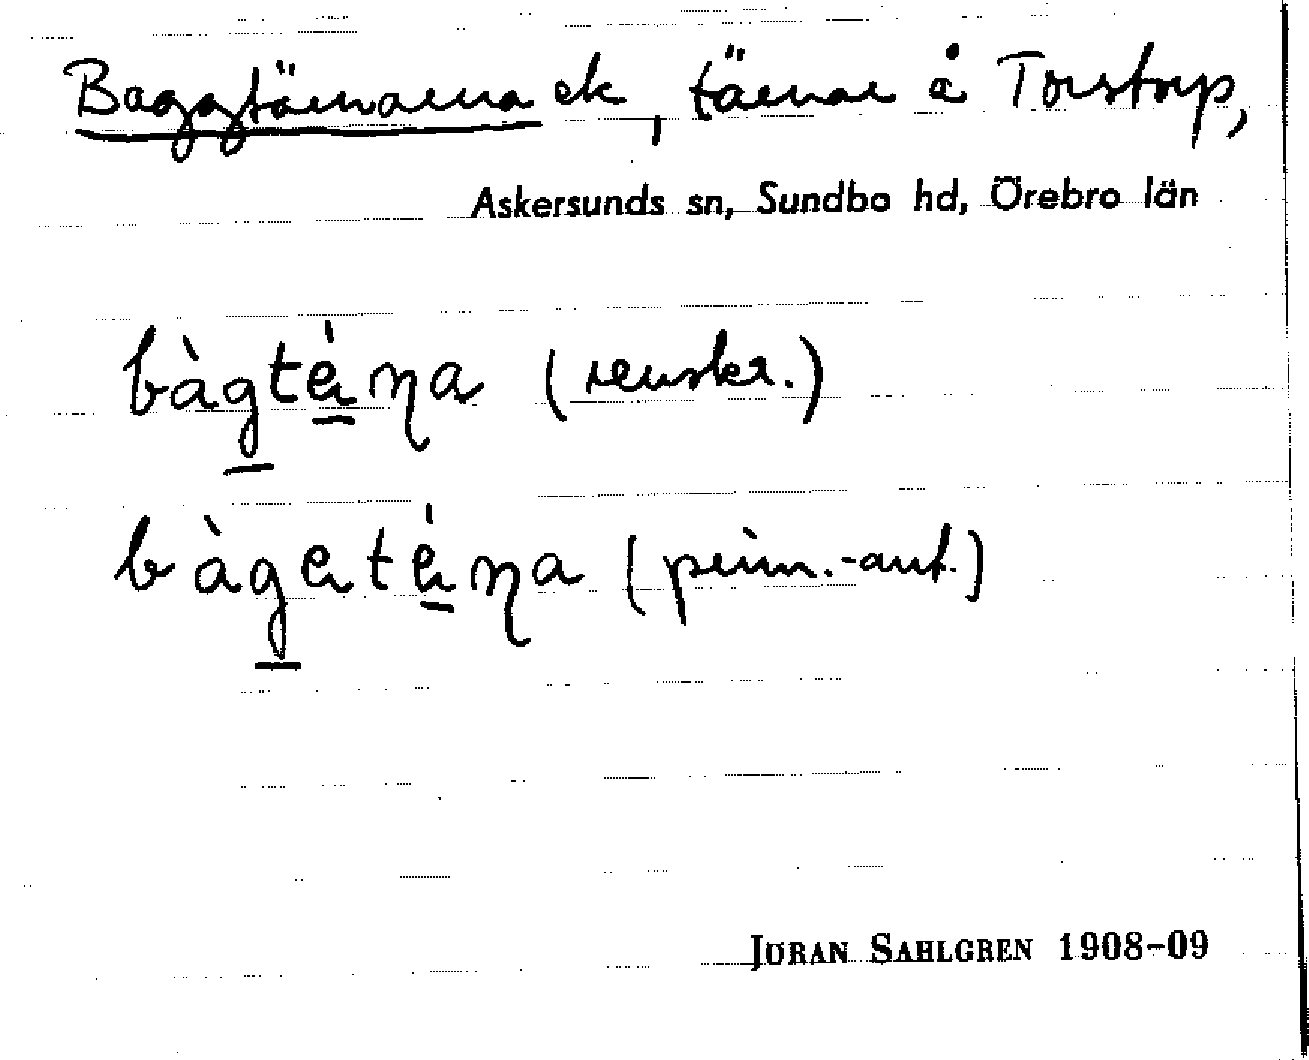 Baggtärnarna ek, tärnar å Torstorp,
Askersunds sn, Sundbo hd, Örebro län
bàgtä́ṇa (renskr.)
bàgatä́ṇa (prim.-ant.)
JÖRAN SAHLGREN 1908-09